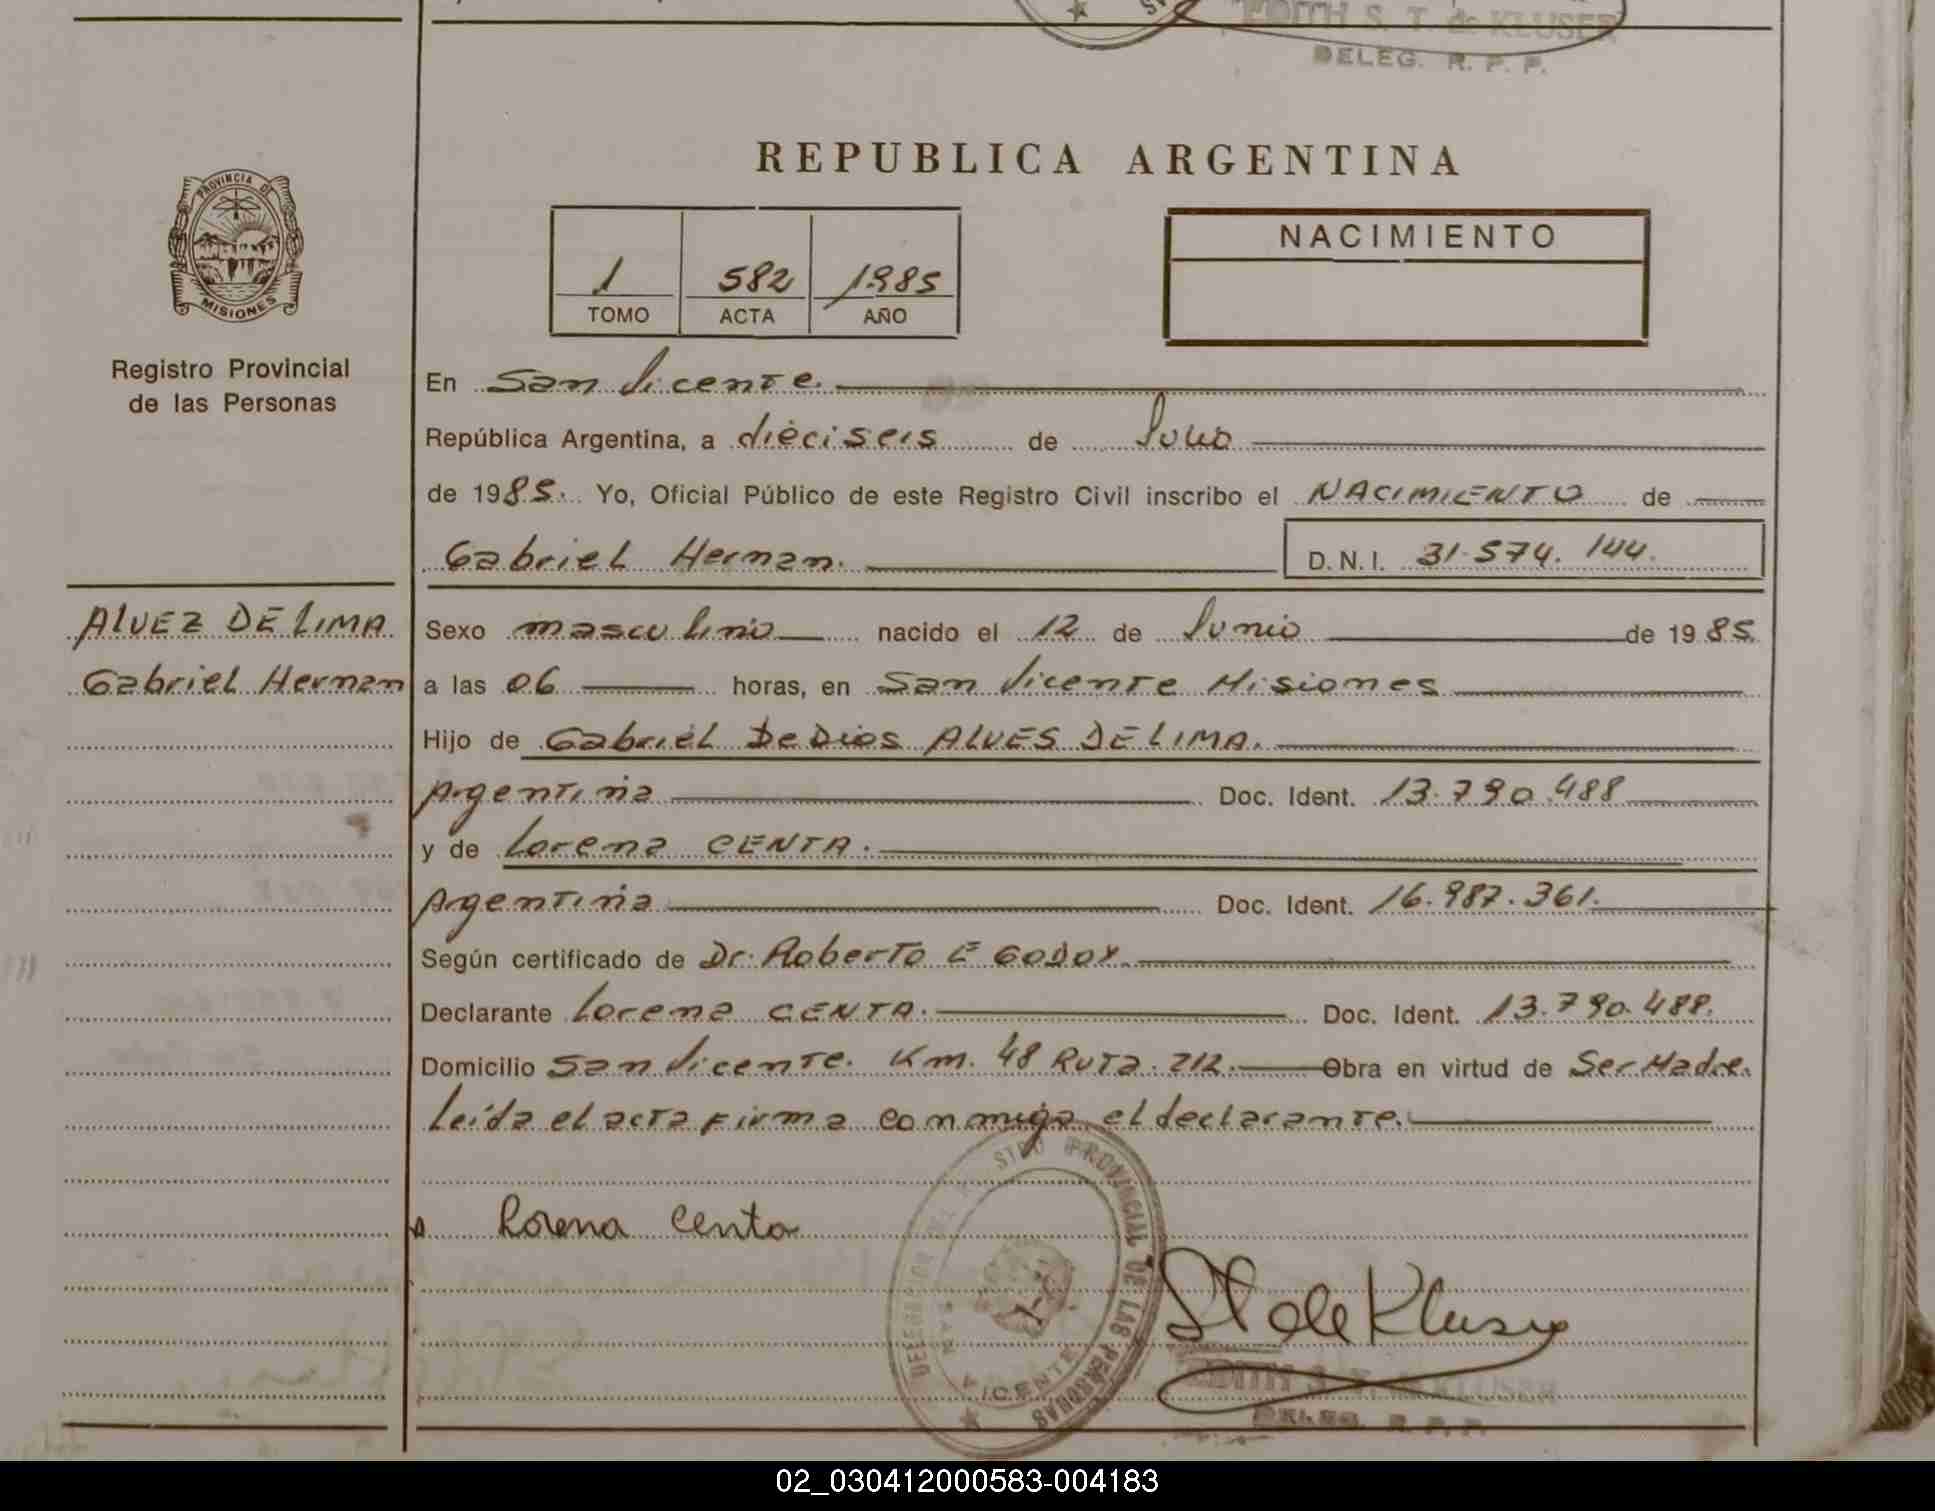 EDITH S. T. de KLUSER
DELEG. R. P. P.
REPUBLICA ARGENTINA
PROVINCIA DE
MISIONES
Registro Provincial
de las Personas
1 582 1985
TOMO ACTA AÑO
NACIMIENTO
En San Vicente.
República Argentina, a dieciseis de Julio
de 1985. Yo, Oficial Público de este Registro Civil inscribo el NACIMIENTO de
Gabriel Hernan. D.N.I. 31.574.144.
ALVEZ DE LIMA
Gabriel Hernan
Sexo masculino nacido el 12 de Junio de 1985.
a las 06 horas, en San Vicente Misiones
Hijo de Gabriel De Dios ALVES DE LIMA.
Argentina Doc. Ident. 13.790.488
y de Lorena CENTA.
Argentina Doc. Ident. 16.987.361.
Según certificado de Dr. Roberto E GODOY.
Declarante Lorena CENTA. Doc. Ident. 13.790.488.
Domicilio San Vicente. Km. 48 Ruta. 212. Obra en virtud de Ser Madre.
Leída el acta firma conmigo el declarante.
Lorena Centa
PROVINCIAL DE LAS PERSONAS
VICENTE
ST de Kluser
EDITH S. T. de KLUSER
DELEG. R. P. P.
02_030412000583-004183